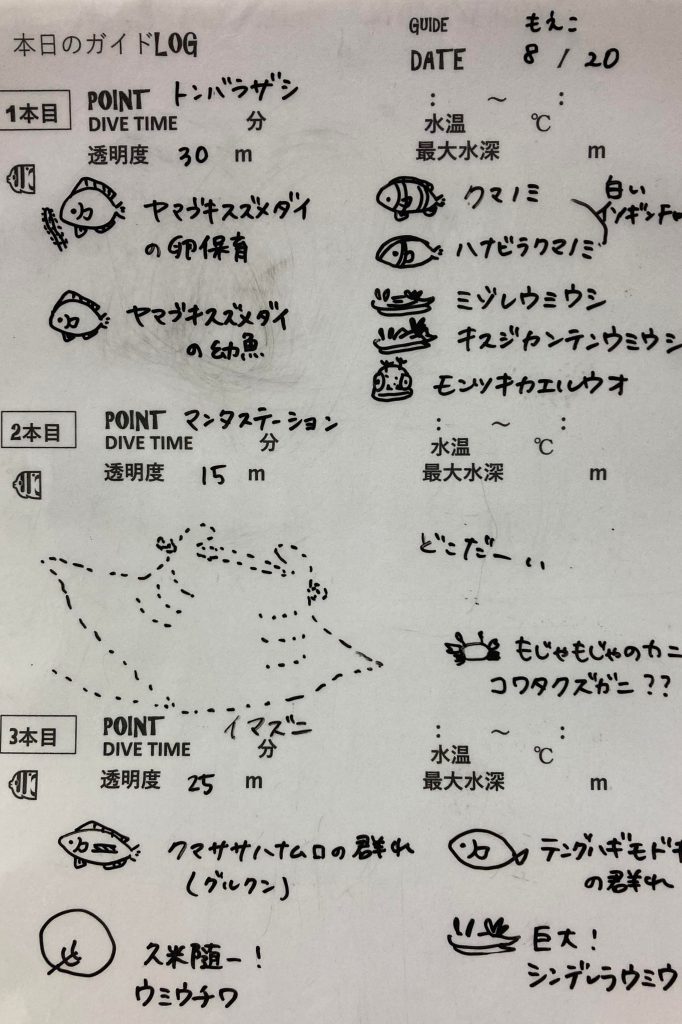 本日のガイドLOG
GUIDE もえこ
DATE 8 / 20
1本目 POINT トンバラザシ : ～ :
DIVE TIME 分 水温 ℃
透明度 30 m 最大水深 m
ヤマブキスズメダイ
の卵保育
ヤマブキスズメダイ
の幼魚
クマノミ
ハナビラクマノミ
白い
イソギンチャ
ミゾレウミウシ
キスジカンテンウミウシ
モンツキカエルウオ
2本目 POINT マンタステーション : ～ :
DIVE TIME 分 水温 ℃
透明度 15 m 最大水深 m
どこだーい
もじゃもじゃのカニ
コワタクズガニ??
3本目 POINT イマズニ : ～ :
DIVE TIME 分 水温 ℃
透明度 25 m 最大水深 m
クマササハナムロの群れ
(グルクン)
テングハギモドキ
の群れ
久米随一!
ウミウチワ
巨大!
シンデレラウミウ